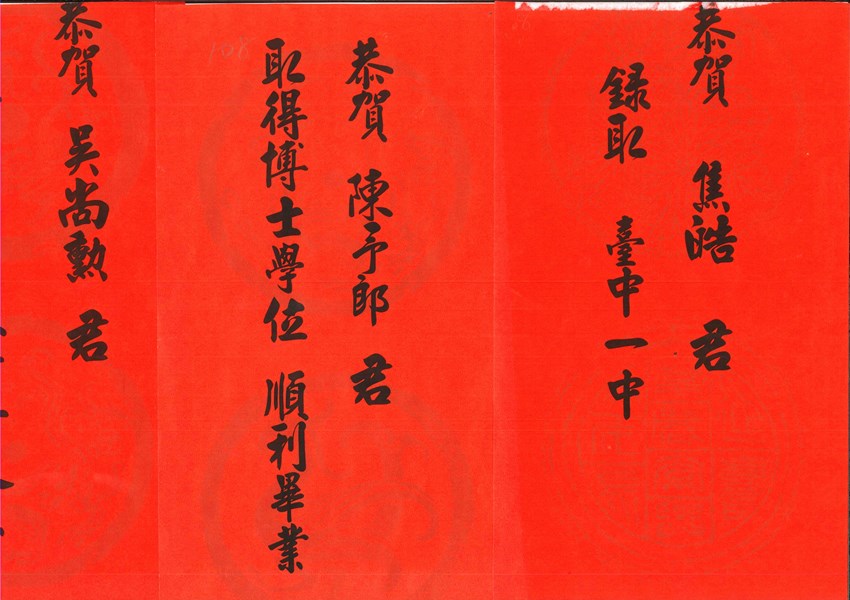 恭賀 焦皓 君
録取 臺中一中
恭賀 陳予郎 君
取得博士學位 順利畢業
恭賀 吳尚勲 君